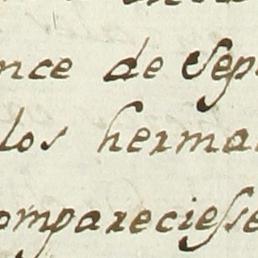 nce de Sep
los herma
ompareciesse